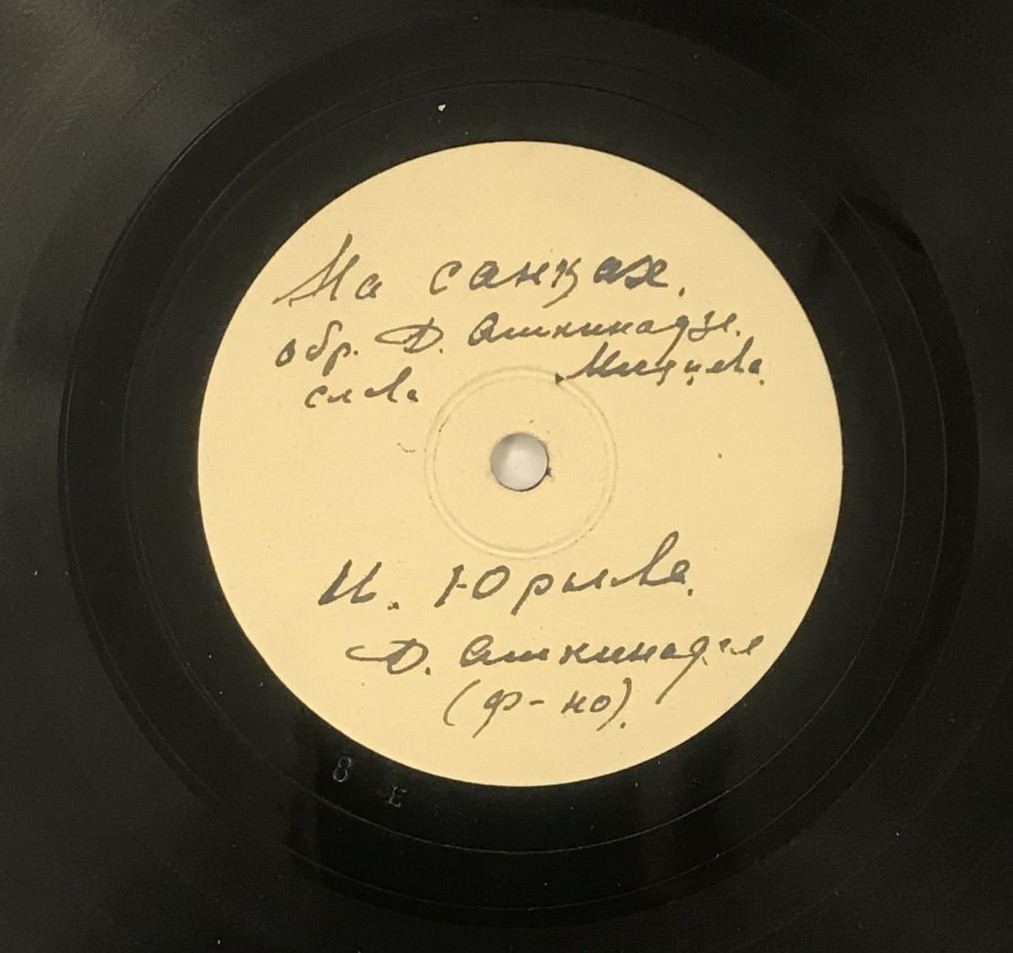 На санках.
обр. Д. Ашкинадзе.
слова
И. Юрьева.
Д. Ашкинадзе
(ф-но).
8
E